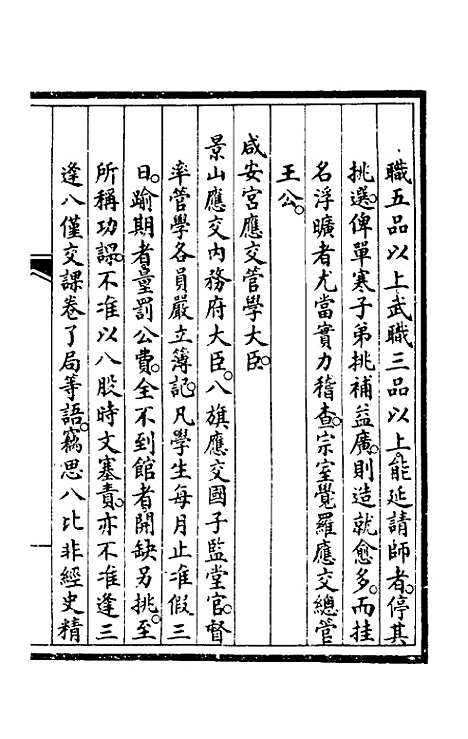 職五品以上武職三品以上。能延請師者。停其
挑選。俾單寒子弟挑補益廣。則造就愈多。而挂
名浮曠者尤當實力稽查。宗室覺羅應交總管
王公。
咸安宮應交管學大臣。
景山應交內務府大臣。八旗應交國子監堂官。督
率管學各員嚴立簿記。凡學生每月止准假三
日。踰期者量罰公費。全不到館者開缺另挑。至
所稱功課。不准以八股時文塞責。亦不准逢三
逢八僅交課卷了局等語。竊思八比非經史精